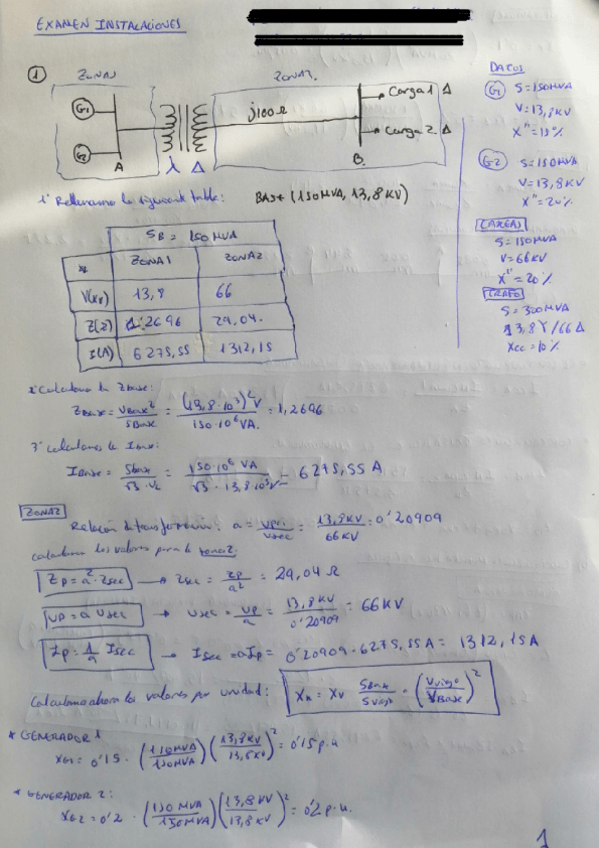 EXAMEN INSTALACIONES
1
ZONA1
ZONA2.
G1
G2
A
λ Δ
j100Ω
B.
Carga 1 Δ
Carga 2 Δ
DATOS
G1 S=150MVA
V=13,8KV
X"=15%
G2 S=150MVA
V=13,8KV
X"=20%
CARGAS
S=150MVA
V=66KV
X"=20%
TRAFO
S=300MVA
13,8Y/66Δ
Xcc=10%
1º Rellenamos la siguiente tabla: BASE (150MVA, 13,8KV)
SB = 150 MVA
* ZONA1 ZONA2
V(KV) 13,8 66
Z(Ω) 1,2696 29,04.
I(A) 6275,55 1312,15
2º Calculamos la Zbase:
Zbase = Vbase² / Sbase = (13,8·10³)² V / 150·10⁶ VA. = 1,2696
3º calculamos la Ibase:
Ibase = Sbase / √3·VL = 150·10⁶ VA / √3·13,8·10³V = 6275,55 A
ZONA2
Relación de transformación: a = Vpri. / Vsec = 13,8KV / 66KV = 0'20909
calculamos los valores para la zona2:
Zp = a²·Zsec → Zsec = Zp / a² = 29,04 Ω
Up = a Usec → Usec = Up / a = 13,8KV / 0'20909 = 66KV
Ip = 1/a Isec → Isec = aIp = 0'20909·6275,55A = 1312,15A
Calculamos ahora los valores por unidad: Xn = Xv Sbase / Sviejo · (Vviejo / Vbase)²
* GENERADOR 1
XG1 = 0'15 · (150MVA / 150MVA) (13,8KV / 13,8KV)² = 0'15 p.u
* GENERADOR 2:
XG2 = 0'2 · (150 MVA / 150MVA) (13,8 KV / 13,8KV)² = 0'2 p.u.
1